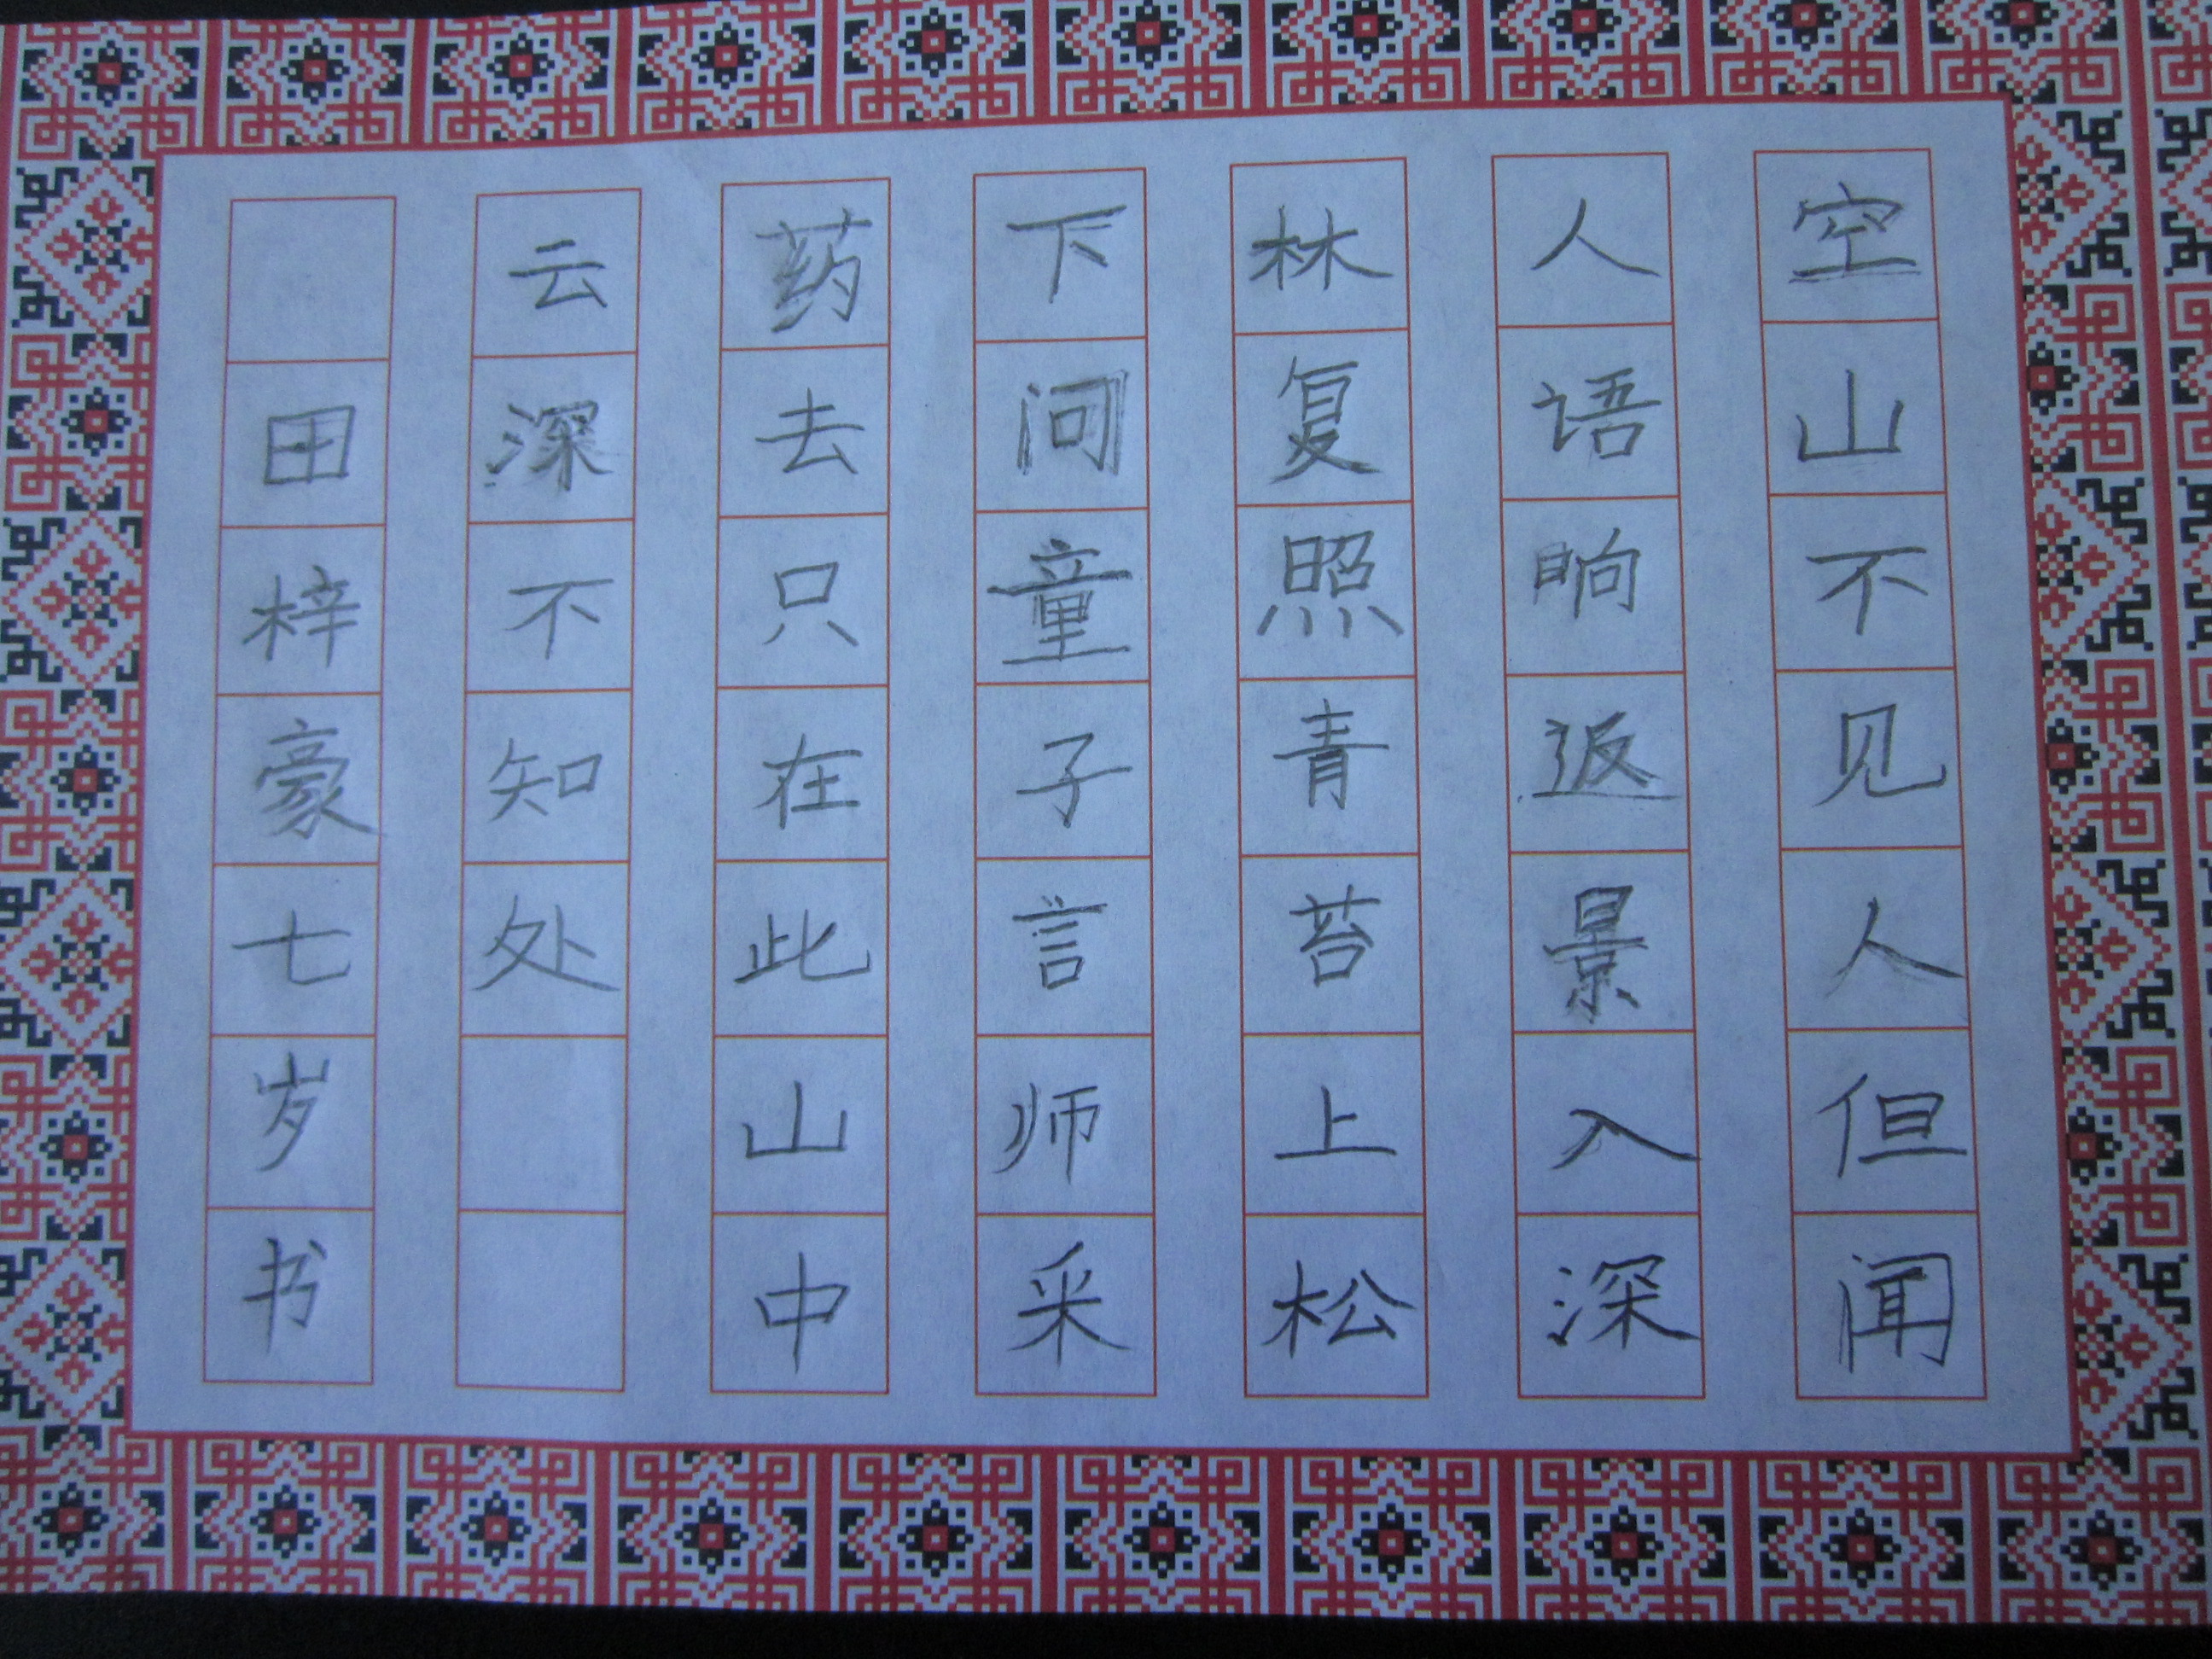 空山不见人但闻
人语响返景入深
林复照青苔上松
下问童子言师采
药去只在此山中
云深不知处
田梓豪七岁书